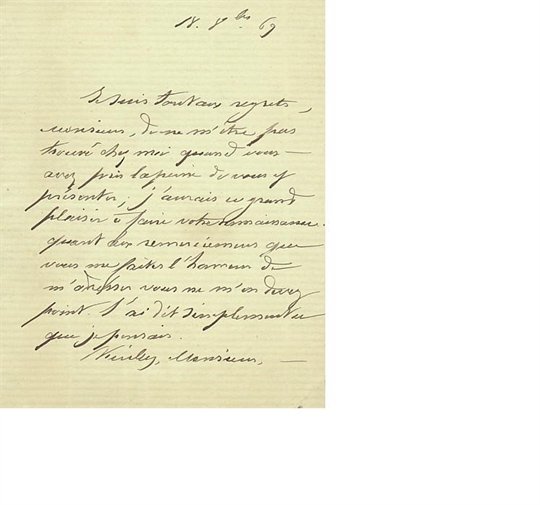 18. 8bre 69
Je suis tout aux regrets,
monsieur, de ne m'être pas
trouvé chez moi quand vous —
avez pris la peine de vous y
présenter; j'aurais eu grand
plaisir à faire votre connaissance.
quant aux remerciemens que
vous me faites l'honneur de
m'adresser vous ne m'en devez
point. J'ai dit simplement ce
que je pensais.
Veuillez, Monsieur, —